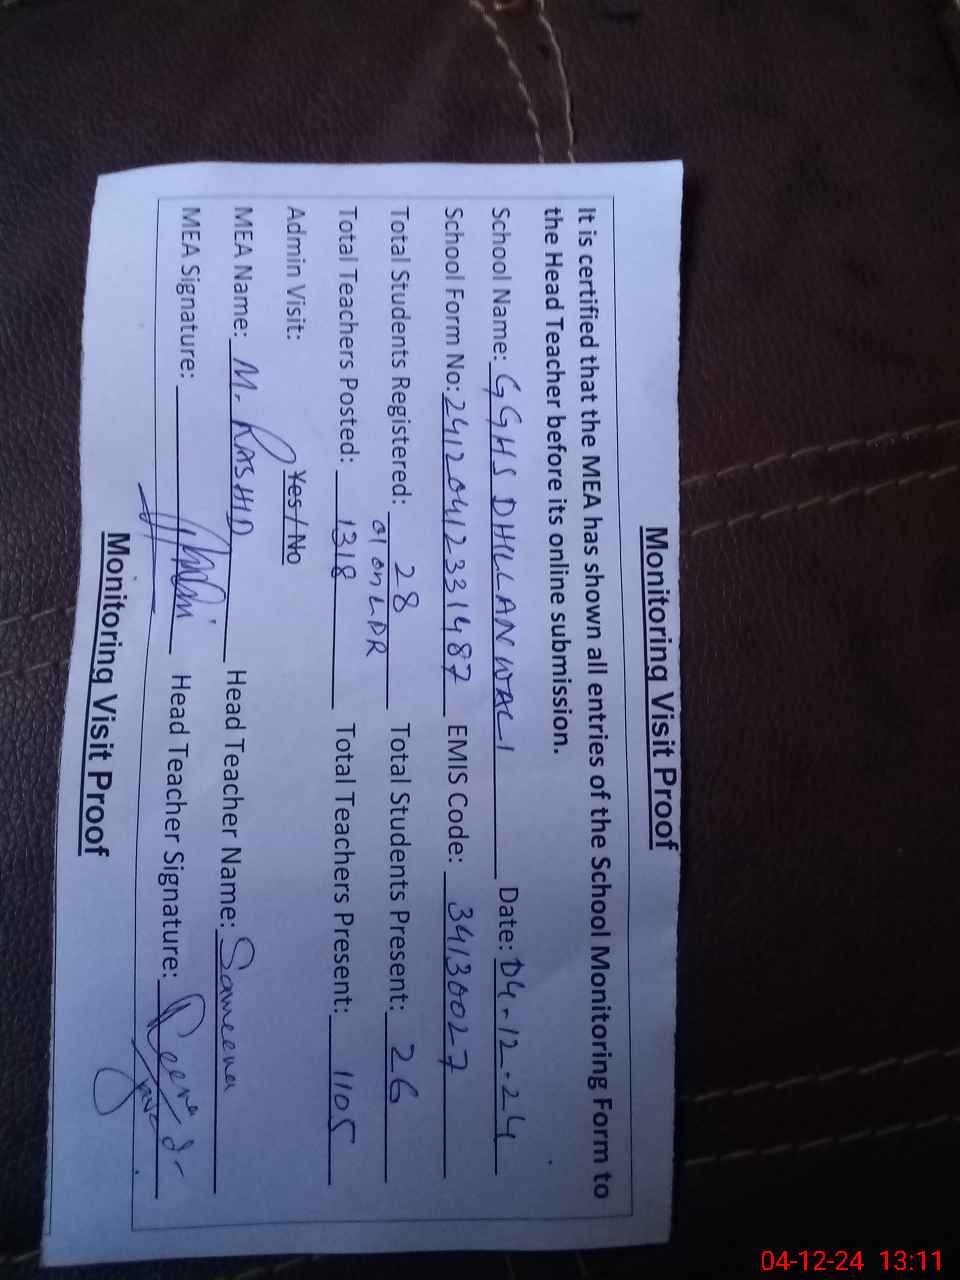 Monitoring Visit Proof
It is certified that the MEA has shown all entries of the School Monitoring Form to
the Head Teacher before its online submission.
School Name: GGHS DHILLANWALI Date: 04-12-24
School Form No: 24120412331487 EMIS Code: 34130027
Total Students Registered: 28 Total Students Present: 26
01 on LPR
Total Teachers Posted: 1318 Total Teachers Present: 1105
Admin Visit: Yes/No
MEA Name: M. RASHID Head Teacher Name: Sameena
MEA Signature: Head Teacher Signature:
Monitoring Visit Proof
04-12-24 13:11